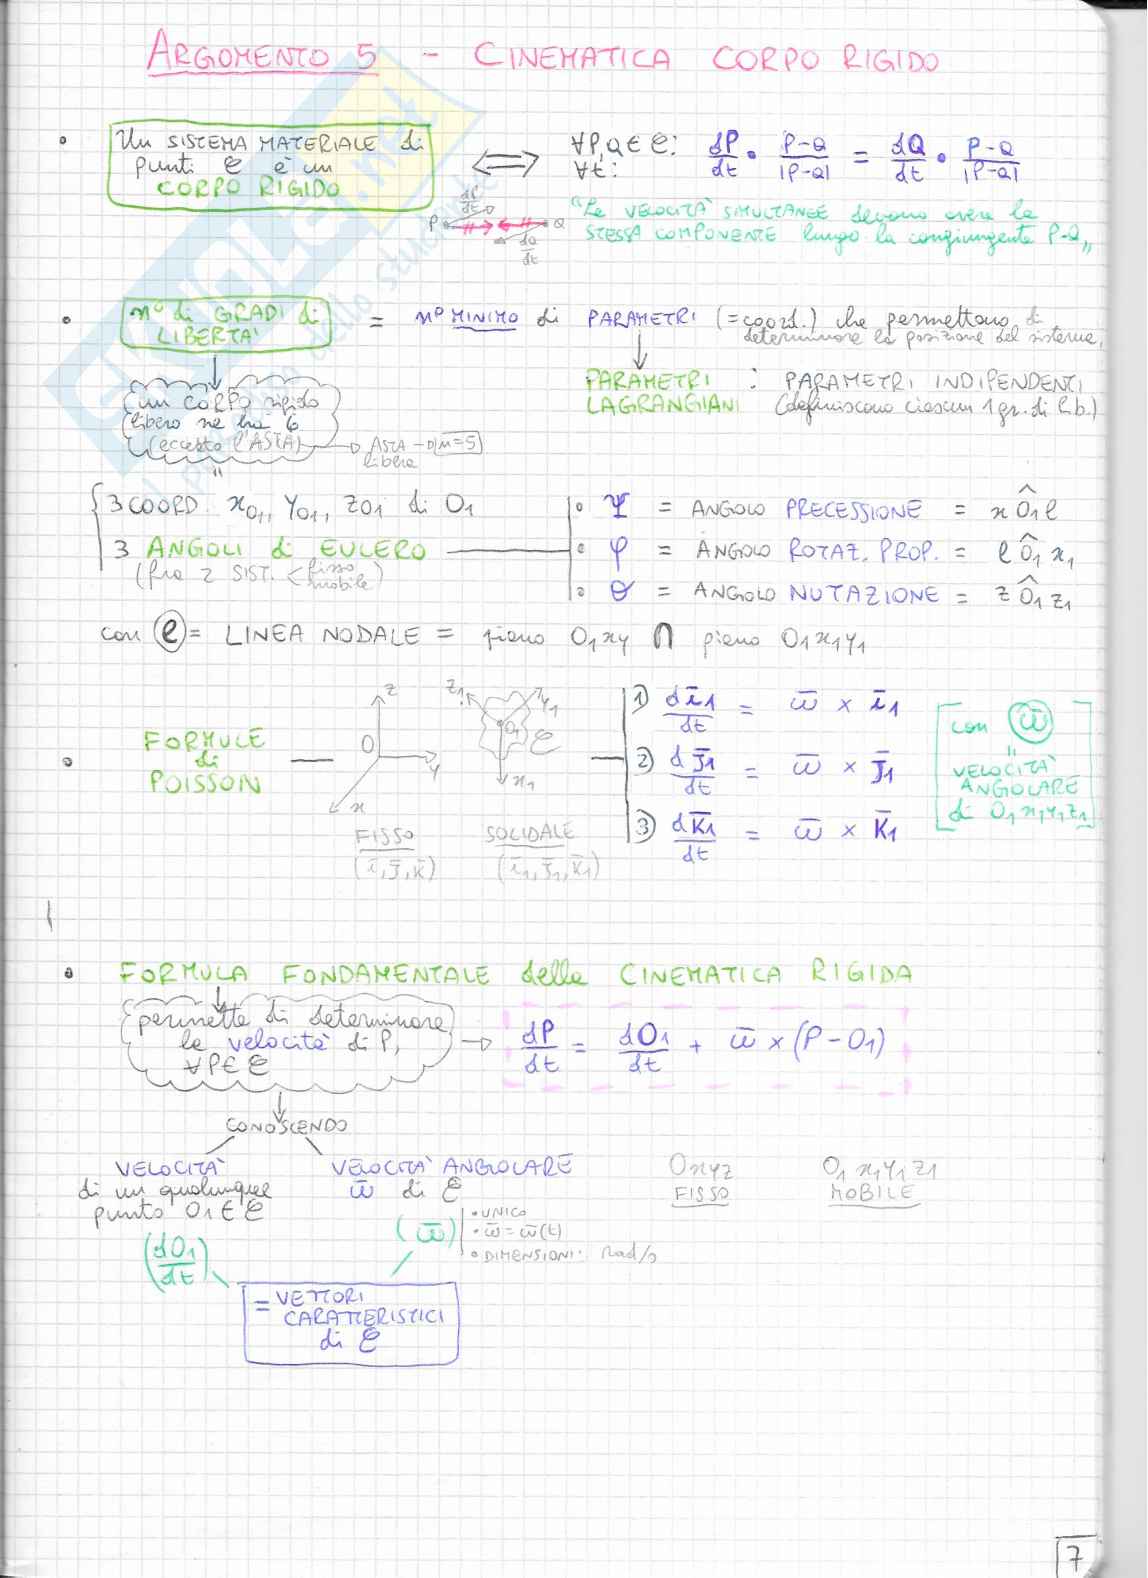 ARGOMENTO 5 - CINEMATICA CORPO RIGIDO
Un SISTEMA MATERIALE di
punti C è un
CORPO RIGIDO
⟺
∀P,Q∈C:
∀t:
dP/dt • P-Q/|P-Q| = dQ/dt • P-Q/|P-Q|
"Le VELOCITÀ SIMULTANEE devono avere la
STESSA COMPONENTE lungo la congiungente P-Q"
dP/dt
P Q
dQ/dt
n° di GRADI di
LIBERTA'
= n° MINIMO di PARAMETRI (=coord.) che permettono di
determinare la posizione del sistema.
PARAMETRI : PARAMETRI INDIPENDENTI
LAGRANGIANI (definiscono ciascun 1 gr. di lib.)
un CORPO rigido
libero ne ha 6
(eccetto l'ASTA)
ASTA → n=5
libera
3 COORD. x01, y01, z01 di O1
3 ANGOLI di EULERO
(fra 2 SIST. < fisso
mobile)
• Ψ = ANGOLO PRECESSIONE = x Ô1 l
• φ = ANGOLO ROTAZ. PROP. = l Ô1 x1
• θ = ANGOLO NUTAZIONE = z Ô1 z1
con l = LINEA NODALE = piano O1xy ∩ piano O1x1y1
FORMULE
di
POISSON
z
O
y
x
FISSO
(ī, j̄, k̄)
z1
y1
O1
C
x1
SOLIDALE
(ī1, j̄1, k̄1)
1) dī1/dt = ω̄ × ī1
2) dj̄1/dt = ω̄ × j̄1
3) dk̄1/dt = ω̄ × k̄1
con ω̄
=
VELOCITÀ
ANGOLARE
di O1x1y1z1
FORMULA FONDAMENTALE della CINEMATICA RIGIDA
permette di determinare
la velocità di P,
∀P∈C
→ dP/dt = dO1/dt + ω̄ × (P-O1)
CONOSCENDO
VELOCITÀ
di un qualunque
punto O1∈C
(dO1/dt)
VELOCITÀ ANGOLARE
ω̄ di C
(ω̄)
• UNICO
• ω̄=ω̄(t)
• DIMENSIONI: rad/s
Oxyz
FISSO
O1 x1y1z1
MOBILE
= VETTORI
CARATTERISTICI
di C
7